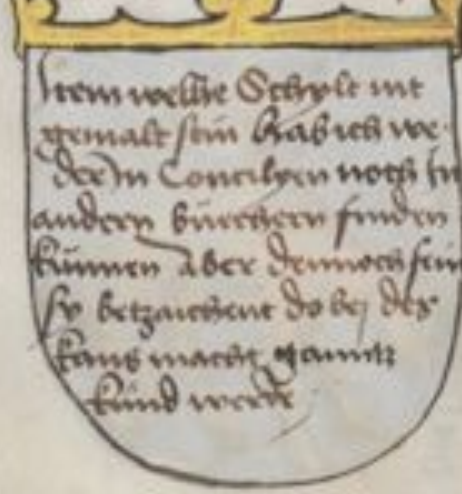 Item welhe Schylt nit
gemalt sein hab ich we-
der in Concilyen noch in
andern büechern finden
künnen Aber dennoch sein
sy betzaichent do bej des
macht
kund werde